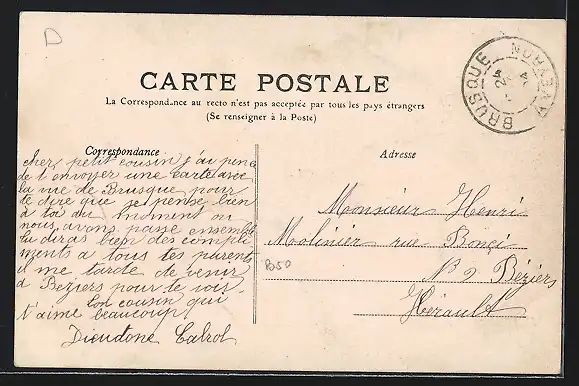 D
CARTE POSTALE
La Correspondance au recto n'est pas acceptée par tous les pays étrangers
(Se renseigner à la Poste)
BRUSQUE
AVEYRON
24
Correspondance
Adresse
cher petit cousin j'ai pensé
de t'envoyer une Carte avec
la vue de Brusque pour
te dire que je pense bien
a toi au moment ou
nous avons passe ensemble
tu diras bien des compli
ments a tous tes parents
il me tarde de venir
a Beziers pour te voir.
ton cousin qui
t'aime beaucoup
Dieudone Calrol
Monsieur Henri
Molinier rue
N° 2 Béziers
Hérault
B50